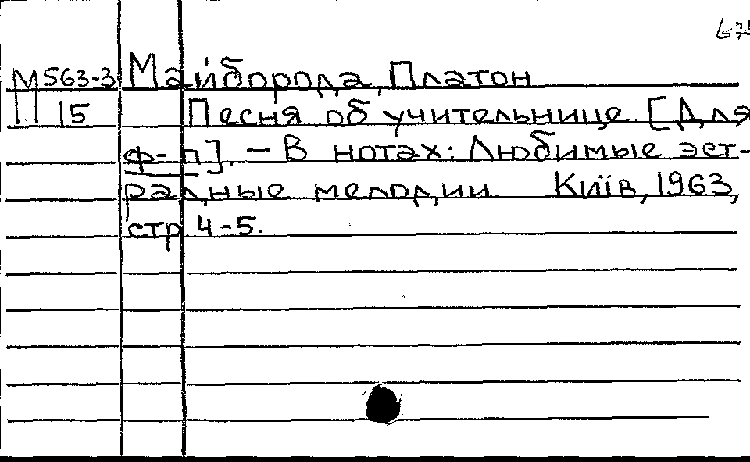 М563-3 Майборода, Платон
15 Песня об учительнице [Для
ф-п]. – В нотах: Любимые эст-
радные мелодии Київ, 1963,
стр 4-5.